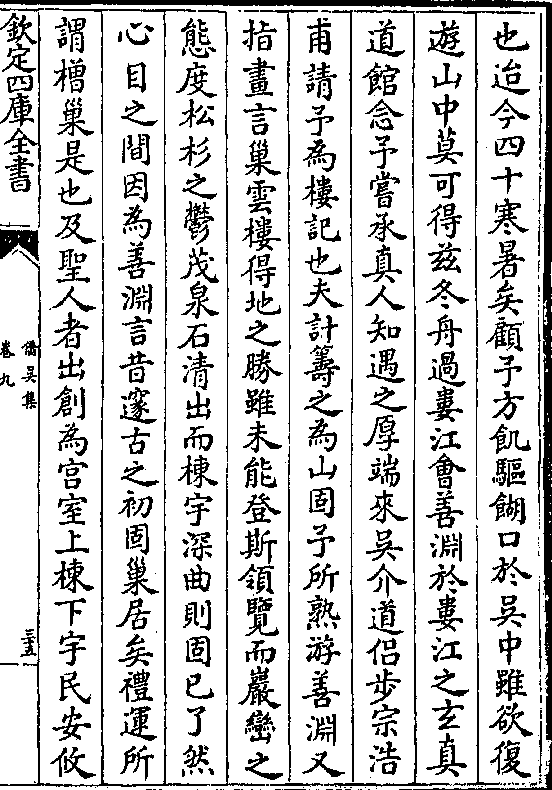 也迨今四十寒暑矣顧予方飢驅餬口於吳中雖欲復
遊山中莫可得兹冬舟過婁江會善淵於婁江之玄真
道館念予嘗承真人知遇之厚端來吳介道侣步宗浩
甫請予為樓記也夫計籌之為山固予所熟游善淵又
指畫言巢雲樓得地之勝雖未能登斯領覽而巖巒之
態度松杉之鬱茂泉石清出而棟宇深曲則固已了然
心目之間因為善淵言昔邃古之初固巢居矣禮運所
謂橧巢是也及聖人者出創為宫室上棟下宇民安攸
欽定四庫全書
僑吳集
卷九
三五